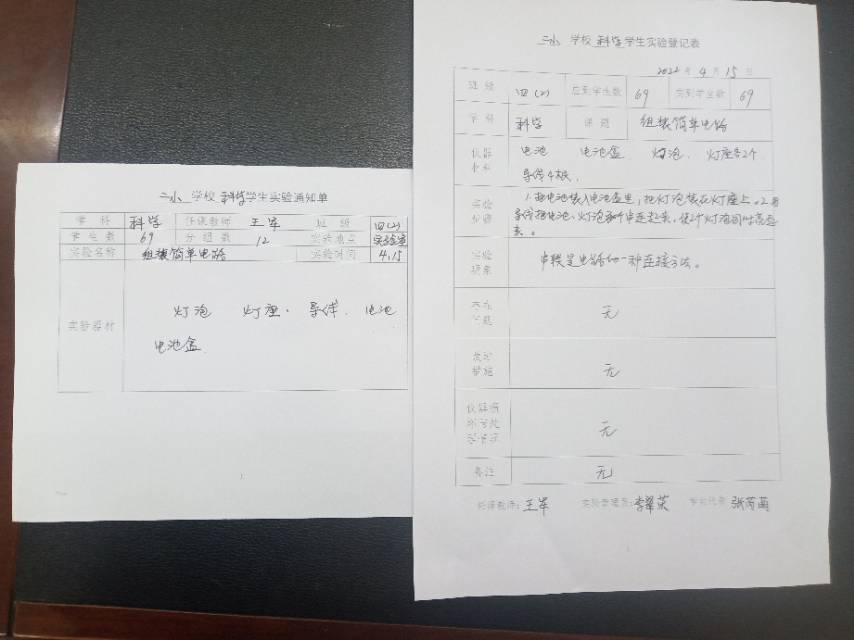 二小 学校 科学学生实验通知单
学科 科学 任课教师 王军 班级 四(2)
学生数 69 分组数 12 实验地点 实验室
实验名称 组装简单电路 实验时间 4.15
实验器材
灯泡 灯座. 导线. 电池
电池盒
二小 学校 科学学生实验登记表
2022年4月15日
班级 四(2) 应到学生数 69 实到学生数 69
学科 科学 课题 组装简单电路
仪器
电池 电池盒 灯泡. 灯座各2个
导线4根.
实验
步骤
1.把电池装入电池盒里,把灯泡装在灯座上。2.用
导线把电池、灯泡串联起来,使2个灯泡同时亮起
来。
实验
现象
串联是电路的一种连接方法。
存在
问题
无
改进
措施
无
无
备注 无
任课教师: 王军 实验管理员: 李翠荣 学生代表 张芮菡